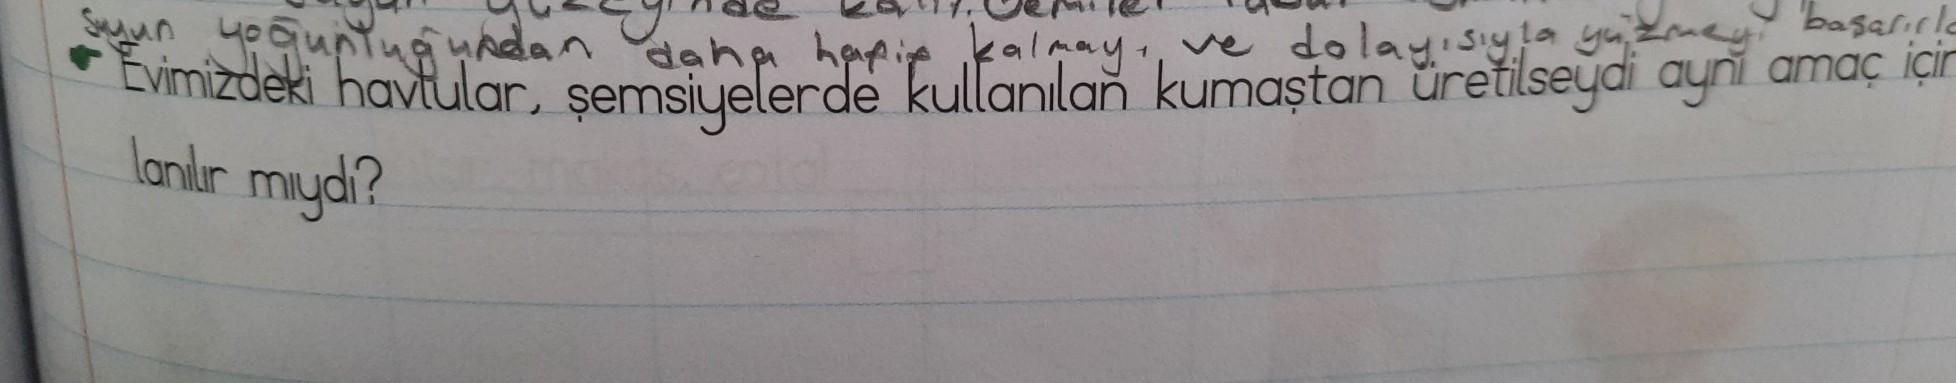 yüzeyinde kalır. Gemiler
suyun yoğunluğundan daha hafif kalmayı ve dolayısıyla yüzmeyi başarırla
Evimizdeki havlular, şemsiyelerde kullanılan kumaştan üretilseydi ayni amaç için
lanılır mıydı?